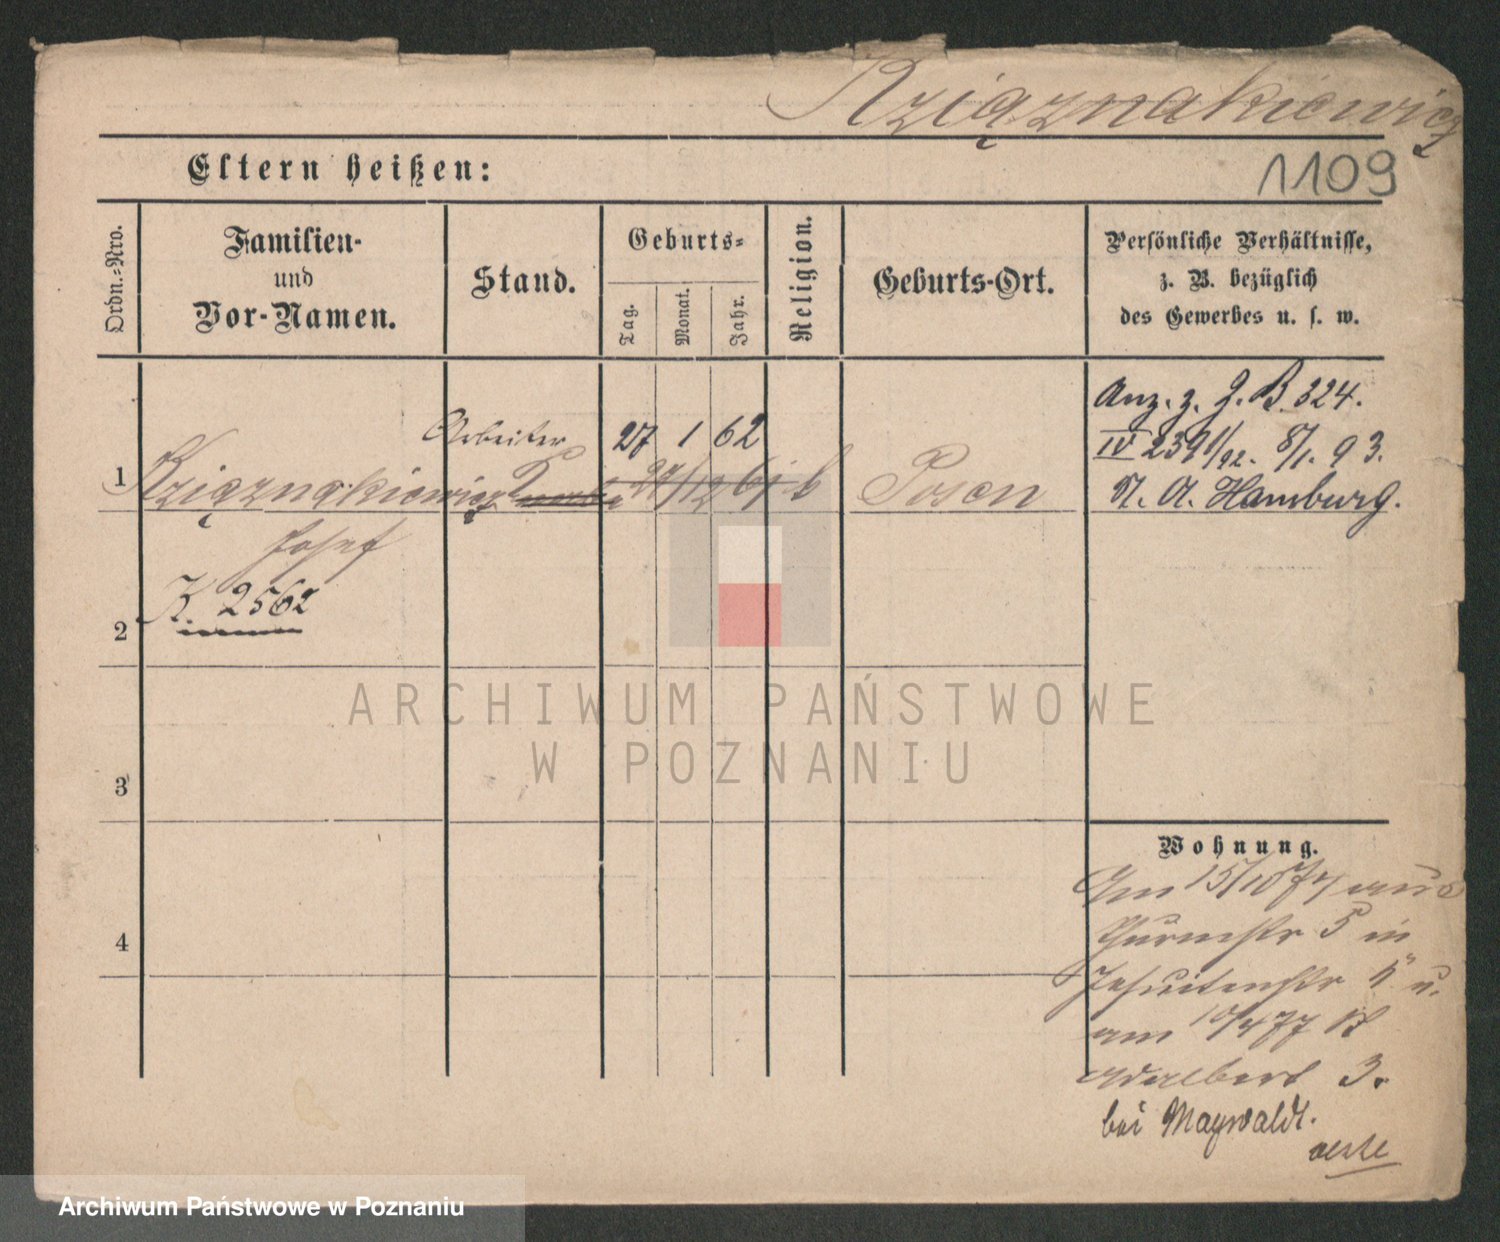 Książnakiewicz
1109
Eltern heißen:
Ordn.-Nro.
Familien-
und
Vor-Namen.
Stand.
Geburts-
Tag.
Monat.
Jahr.
Religion.
Geburts-Ort.
Persönliche Verhältnisse,
z. B. bezüglich
des Gewerbes u. s. w.
Anz. z. J. B. 324.
IV 2391/92. 8/1. 93.
St. A. Hamburg.
Arbeiter 27 1 62
1 Książnakiewicz 27/12 61 k Posen
Josef
K. 2562
2
3
4
Wohnung.
Am 15/10 74 aus
Thurmstr 5 in
Jesuitenstr 5 u.
am 10/4 77 St
Adalbert 3.
bei Maywaldt.
ARCHIWUM PAŃSTWOWE
W POZNANIU
Archiwum Państwowe w Poznaniu